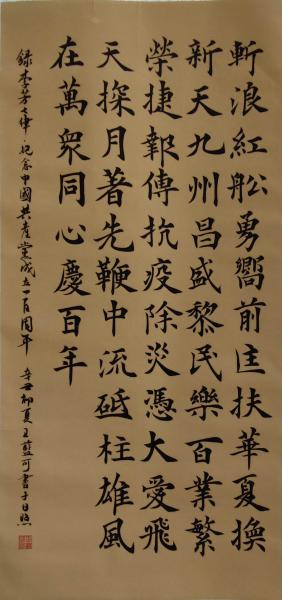 斬浪紅舩勇嚮前匡扶華夏換
新天九州昌盛黎民樂百業繁
榮捷報傳抗疫除災憑大愛飛
天探月著先鞭中流砥柱雄風
在萬衆同心慶百年
録李芳七律·紀念中國共產黨成立一百周年 辛丑初夏王藍可書于日照